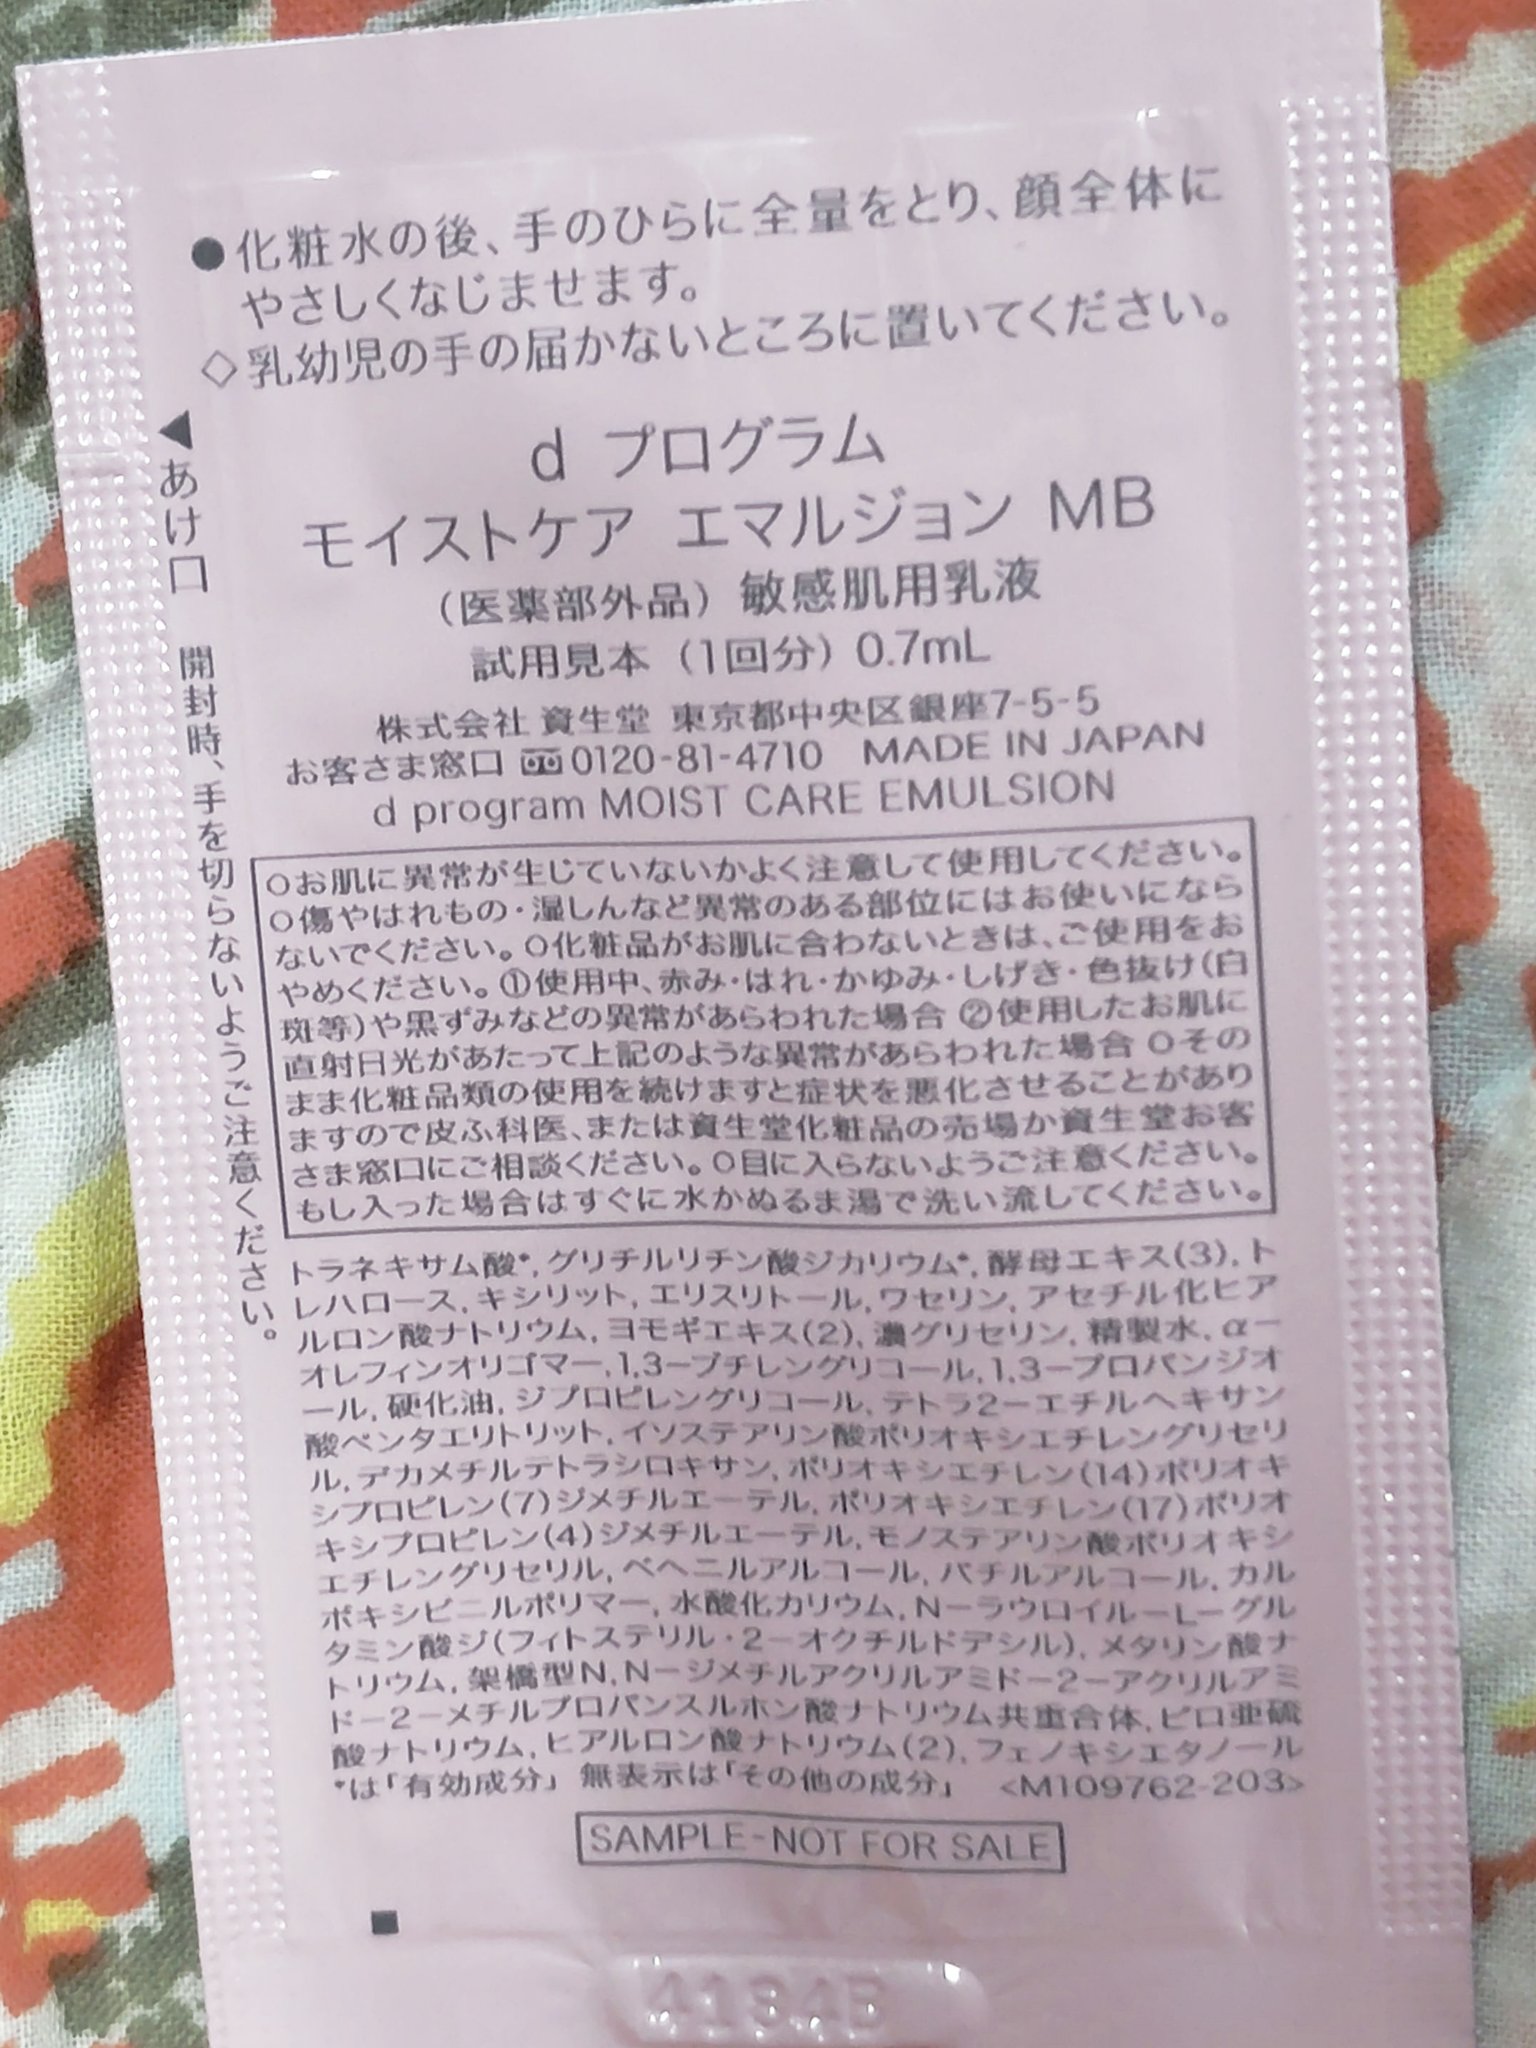 ●化粧水の後、手のひらに全量をとり、顔全体に
やさしくなじませます。
◇乳幼児の手の届かないところに置いてください。
◀あけ口 開封時、手を切らないようご注意ください。
d プログラム
モイストケア エマルジョン MB
(医薬部外品) 敏感肌用乳液
試用見本 (1回分) 0.7mL
株式会社 資生堂 東京都中央区銀座7-5-5
お客さま窓口 0120-81-4710 MADE IN JAPAN
d program MOIST CARE EMULSION
○お肌に異常が生じていないかよく注意して使用してください。
○傷やはれもの・湿しんなど異常のある部位にはお使いになら
ないでください。○化粧品がお肌に合わないときは、ご使用をお
やめください。①使用中、赤み・はれ・かゆみ・しげき・色抜け(白
斑等)や黒ずみなどの異常があらわれた場合 ②使用したお肌に
直射日光があたって上記のような異常があらわれた場合 ○その
まま化粧品類の使用を続けますと症状を悪化させることがあり
ますので皮ふ科医、または資生堂化粧品の売場か資生堂お客
さま窓口にご相談ください。○目に入らないようご注意ください。
もし入った場合はすぐに水かぬるま湯で洗い流してください。
トラネキサム酸*,グリチルリチン酸ジカリウム*,酵母エキス(3),ト
レハロース,キシリット,エリスリトール,ワセリン,アセチル化ヒア
ルロン酸ナトリウム,ヨモギエキス(2),濃グリセリン,精製水,α-
オレフィンオリゴマー,1,3-ブチレングリコール,1,3-プロパンジオ
ール,硬化油,ジプロピレングリコール,テトラ2-エチルヘキサン
酸ペンタエリトリット,イソステアリン酸ポリオキシエチレングリセリ
ル,デカメチルテトラシロキサン,ポリオキシエチレン(14)ポリオキ
シプロピレン(7)ジメチルエーテル,ポリオキシエチレン(17)ポリオ
キシプロピレン(4)ジメチルエーテル,モノステアリン酸ポリオキシ
エチレングリセリル,ベヘニルアルコール,バチルアルコール,カル
ボキシビニルポリマー,水酸化カリウム,N-ラウロイル-L-グル
タミン酸ジ(フィトステリル・2-オクチルドデシル),メタリン酸ナ
トリウム,架橋型N,N-ジメチルアクリルアミド-2-アクリルアミ
ド-2-メチルプロパンスルホン酸ナトリウム共重合体,ピロ亜硫
酸ナトリウム,ヒアルロン酸ナトリウム(2),フェノキシエタノール
*は「有効成分」 無表示は「その他の成分」 <M109762-203>
SAMPLE-NOT FOR SALE
4134B